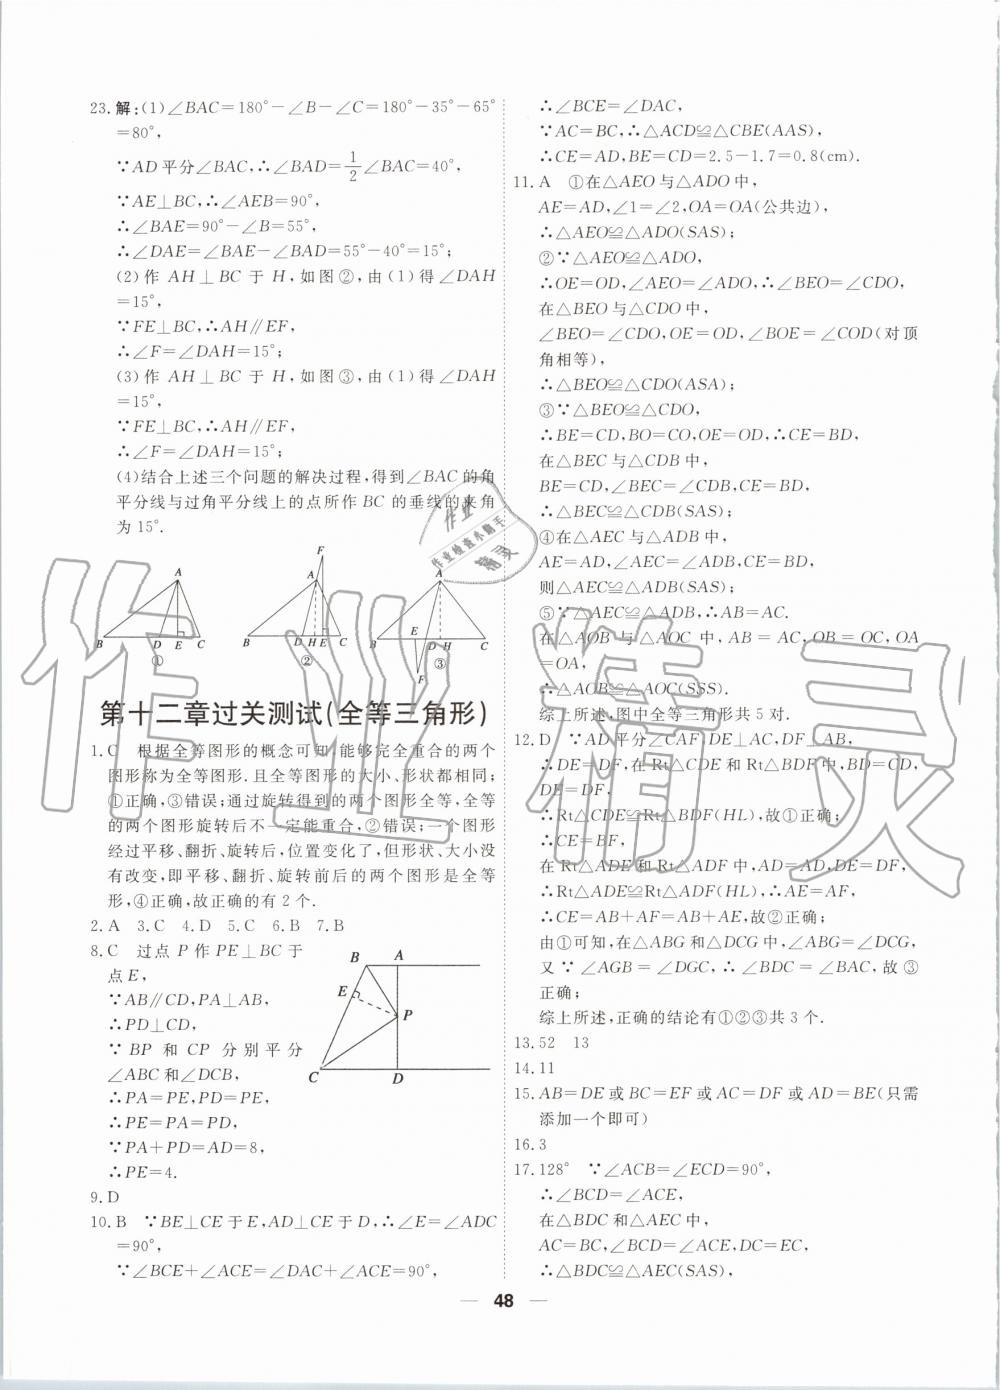 23.解:(1)∠BAC=180°-∠B-∠C=180°-35°-65°
=80°,
∵AD平分∠BAC,∴∠BAD=1/2∠BAC=40°,
∵AE⊥BC,∴∠AEB=90°,
∴∠BAE=90°-∠B=55°,
∴∠DAE=∠BAE-∠BAD=55°-40°=15°;
(2)作 AH⊥BC 于 H,如图②,由(1)得∠DAH
=15°,
∵FE⊥BC,∴AH∥EF,
∴∠F=∠DAH=15°;
(3)作 AH⊥BC 于 H,如图③,由(1)得∠DAH
=15°,
∵FE⊥BC,∴AH∥EF,
∴∠F=∠DAH=15°;
(4)结合上述三个问题的解决过程,得到∠BAC的角
平分线与过角平分线上的点所作BC的垂线的夹角
为15°.
A
B D E C
①
F
A
B D H E C
②
A
E
B D H C
F
③
第十二章过关测试(全等三角形)
1.C 根据全等图形的概念可知能够完全重合的两个
图形称为全等图形.且全等图形的大小、形状都相同;
①正确,③错误;通过旋转得到的两个图形全等,全等
的两个图形旋转后不一定能重合,②错误;一个图形
经过平移、翻折、旋转后,位置变化了,但形状、大小没
有改变,即平移、翻折、旋转前后的两个图形是全等
形,④正确,故正确的有2个.
2.A 3.C 4.D 5.C 6.C 7.B
8.C 过点P作PE⊥BC于
点E,
∵AB∥CD,PA⊥AB,
∴PD⊥CD,
∵BP 和 CP 分别平分
∠ABC和∠DCB,
∴PA=PE,PD=PE,
∴PE=PA=PD,
∵PA+PD=AD=8,
∴PE=4.
B A
E
P
C D
9.D
10.B ∵BE⊥CE于E,AD⊥CE于D,∴∠E=∠ADC
=90°,
∵∠BCE+∠ACE=∠DAC+∠ACE=90°,
∴∠BCE=∠DAC,
∵AC=BC,∴△ACD≌△CBE(AAS),
∴CE=AD,BE=CD=2.5-1.7=0.8(cm).
11.A ①在△AEO与△ADO中,
AE=AD,∠1=∠2,OA=OA(公共边),
∴△AEO≌△ADO(SAS);
②∵△AEO≌△ADO,
∴OE=OD,∠AEO=∠ADO,∴∠BEO=∠CDO,
在△BEO与△CDO中,
∠BEO=∠CDO,OE=OD,∠BOE=∠COD(对顶
角相等),
∴△BEO≌△CDO(ASA);
③∵△BEO≌△CDO,
∴BE=CD,BO=CO,OE=OD,∴CE=BD,
在△BEC与△CDB中,
BE=CD,∠BEC=∠CDB,CE=BD,
∴△BEC≌△CDB(SAS);
④在△AEC与△ADB中,
AE=AD,∠AEC=∠ADB,CE=BD,
则△AEC≌△ADB(SAS);
⑤∵△AEC≌△ADB,∴AB=AC.
在△AOB与△AOC中,AB=AC,OB=OC,OA
=OA,
∴△AOB≌△AOC(SSS).
综上所述,图中全等三角形共5对.
12.D ∵AD平分∠CAF,DE⊥AC,DF⊥AB,
∴DE=DF,在Rt△CDE和Rt△BDF中,BD=CD,
DE=DF,
∴Rt△CDE≌Rt△BDF(HL),故①正确;
∴CE=BF,
在Rt△ADE和Rt△ADF中,AD=AD,DE=DF,
∴Rt△ADE≌Rt△ADF(HL),∴AE=AF,
∴CE=AB+AF=AB+AE,故②正确;
由①可知,在△ABG和△DCG中,∠ABG=∠DCG,
又∵∠AGB=∠DGC,∴∠BDC=∠BAC,故③
正确;
综上所述,正确的结论有①②③共3个.
13.52 13
14.11
15.AB=DE或BC=EF或AC=DF或AD=BE(只需
添加一个即可)
16.3
17.128° ∵∠ACB=∠ECD=90°,
∴∠BCD=∠ACE,
在△BDC和△AEC中,
AC=BC,∠BCD=∠ACE,DC=EC,
∴△BDC≌△AEC(SAS),
— 48 —
作业精灵
作业
作业检查小助手
精灵